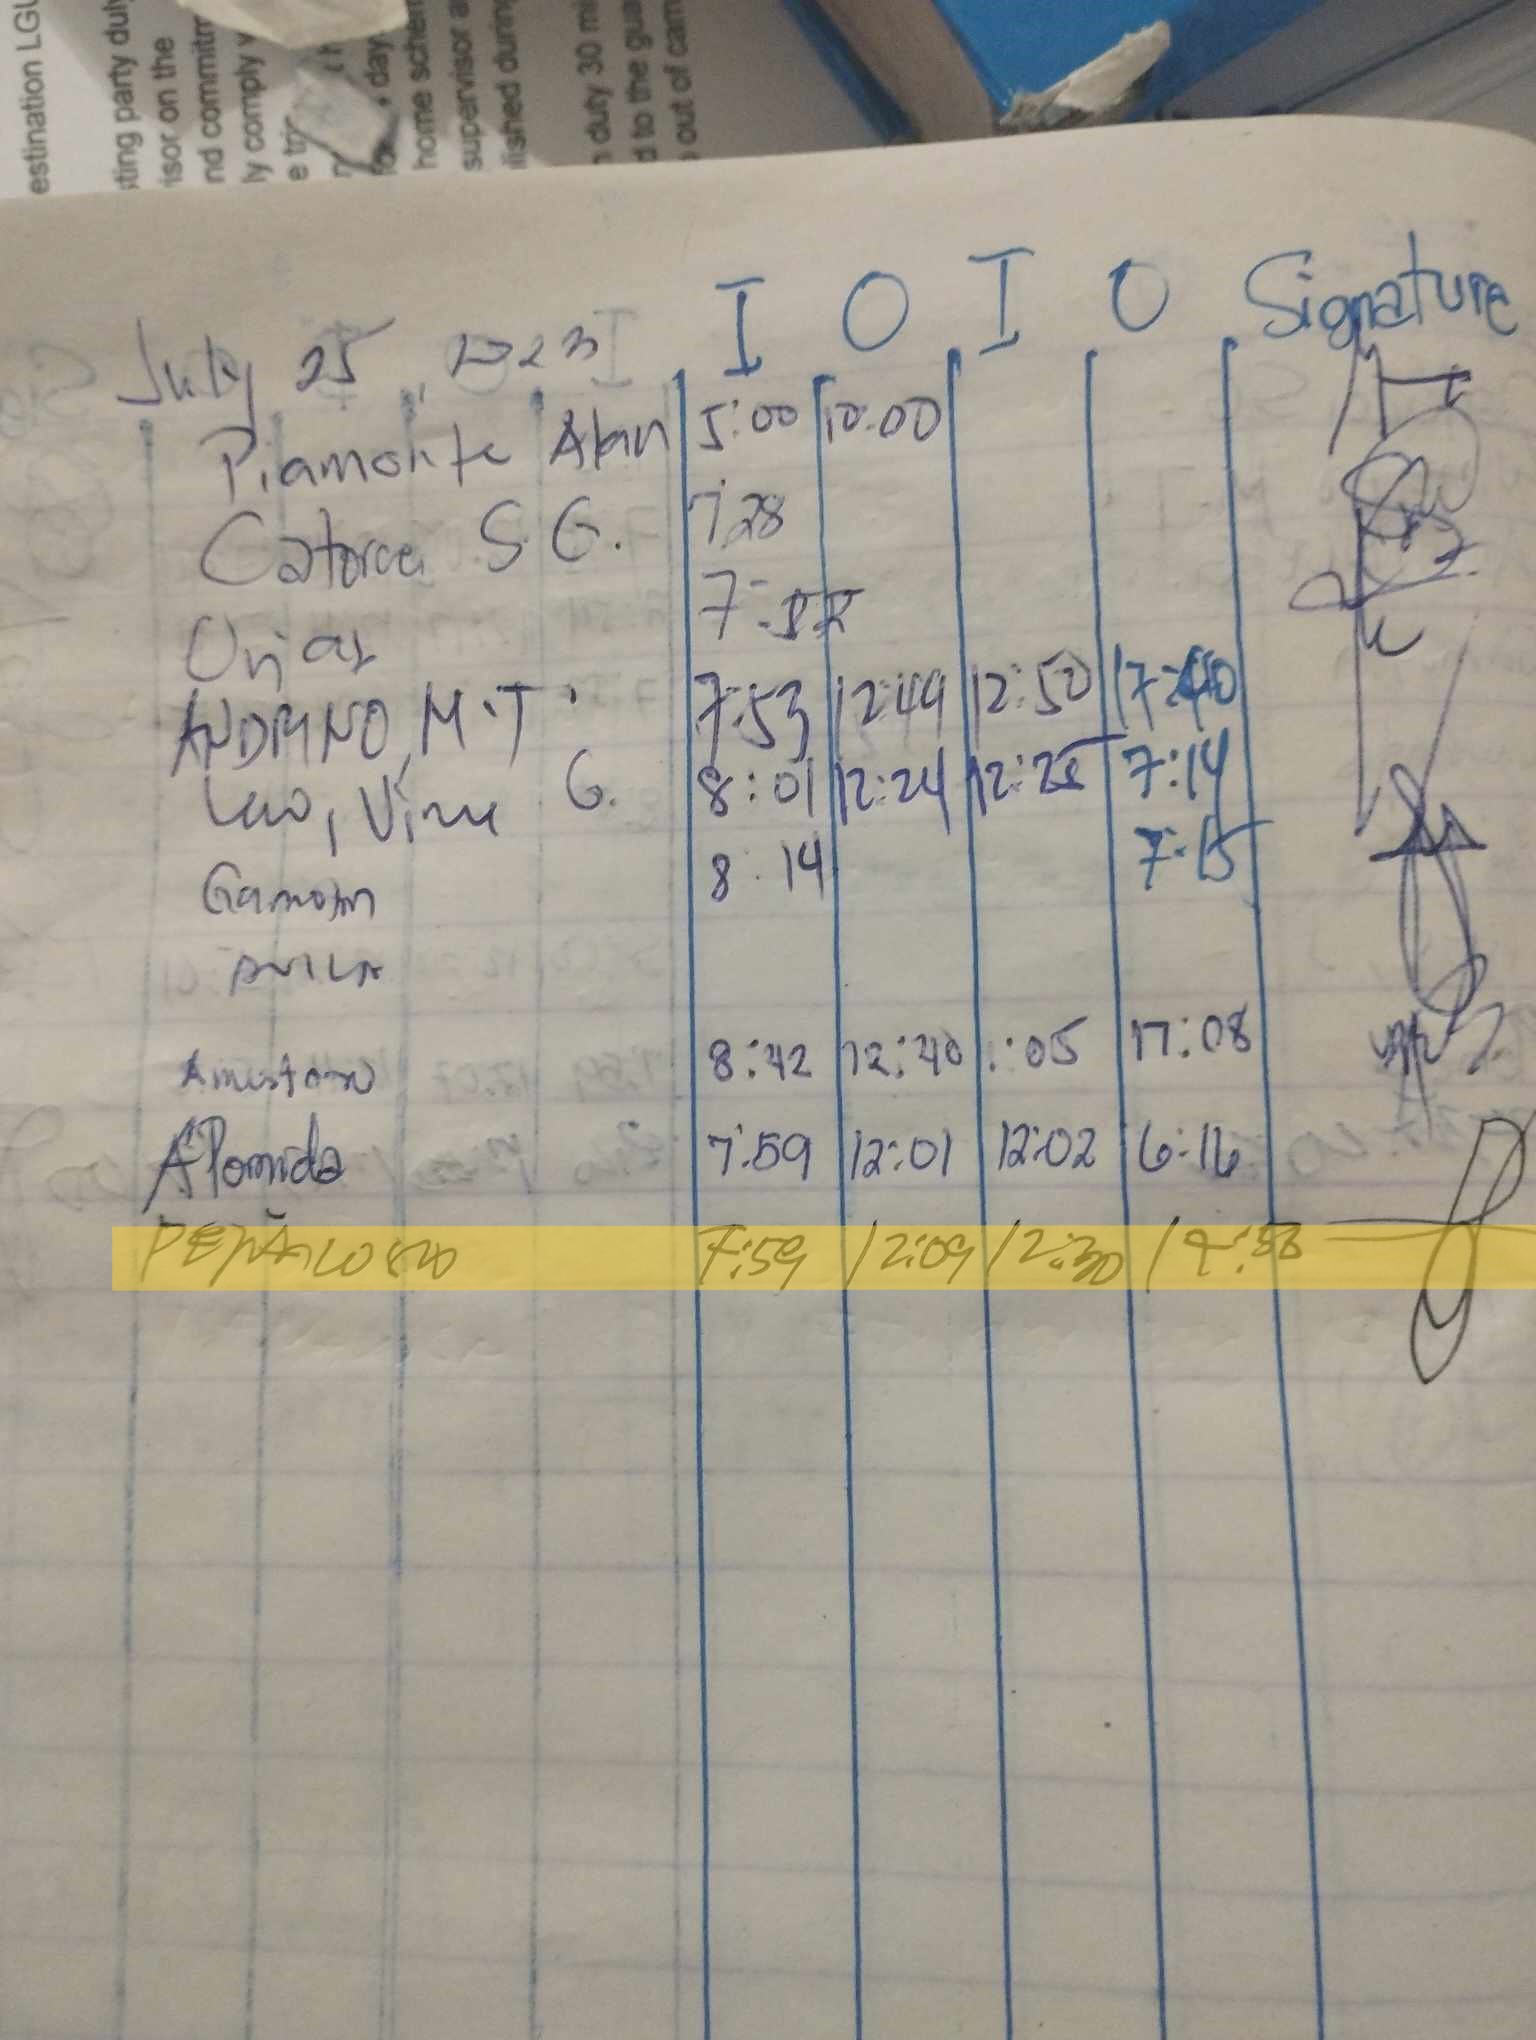 estination LGU
sting party duty
visor on the
nd commitm
ly comply w
day
home schem
supervisor a
lished during
duty 30 mi
d to the gua
out of cam
I O I O Signature
July 25, 2023
Piamonte Alan 5:00 10:00
Catorce S.G. 7:28
Orjas 7:55
ANDRINO, M.T. 7:53 12:49 12:50 17:40
G. 8:01 12:24 12:25 7:14
8:14 7:15
AVILA
8:42 12:40 1:05 17:08
Alomida 7:59 12:01 12:02 6:16
7:59 12:09 12:30